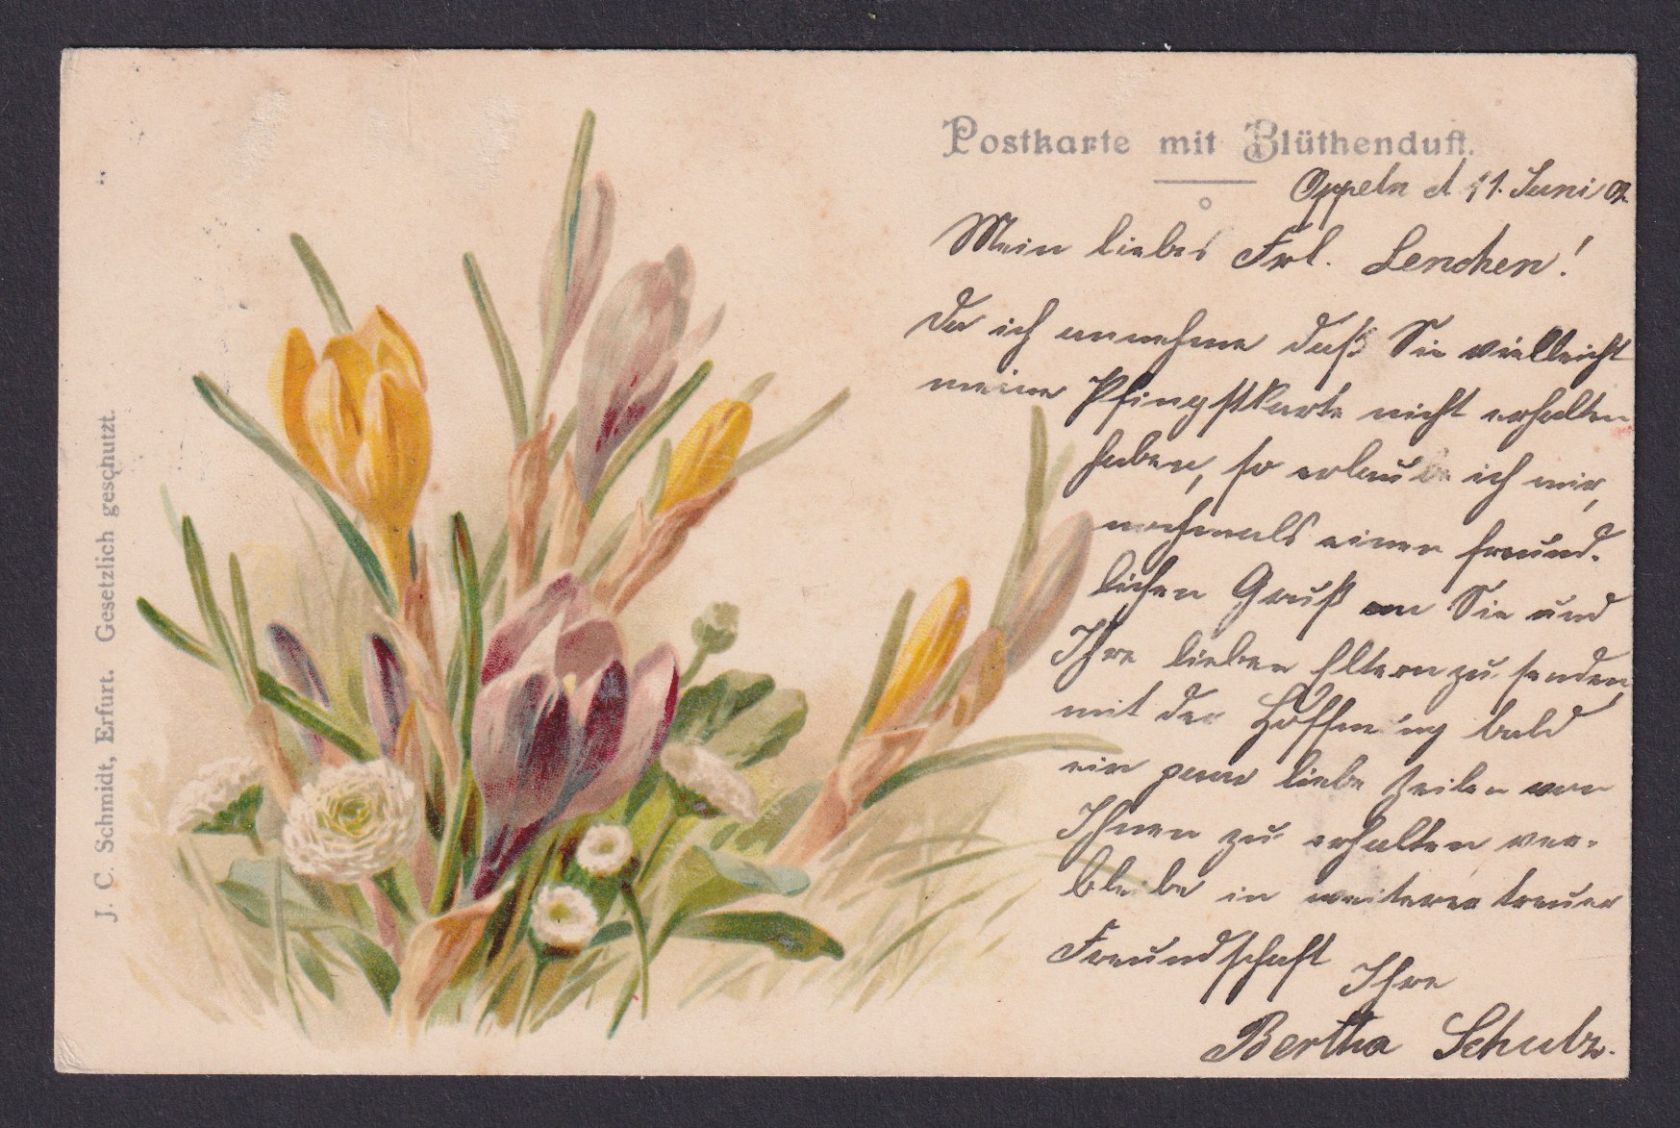 Postkarte mit Blüthenduft.
Oppeln d 11. Juni 02.
Mein liebes Frl. Lenchen!
Da ich annehme daß Sie vielleicht
meine Pfingstkarte nicht erhalten
haben, so erlaube ich mir,
nochmals einen freund-
lichen Gruß an Sie und
Ihre lieben Eltern zu senden,
mit der Hoffnung bald
ein paar liebe Zeilen von
Ihnen zu erhalten ver-
bleibe in weiterer treuer
Freundschaft Ihre
Bertha Schulz.
J. C. Schmidt, Erfurt. Gesetzlich geschutzt.